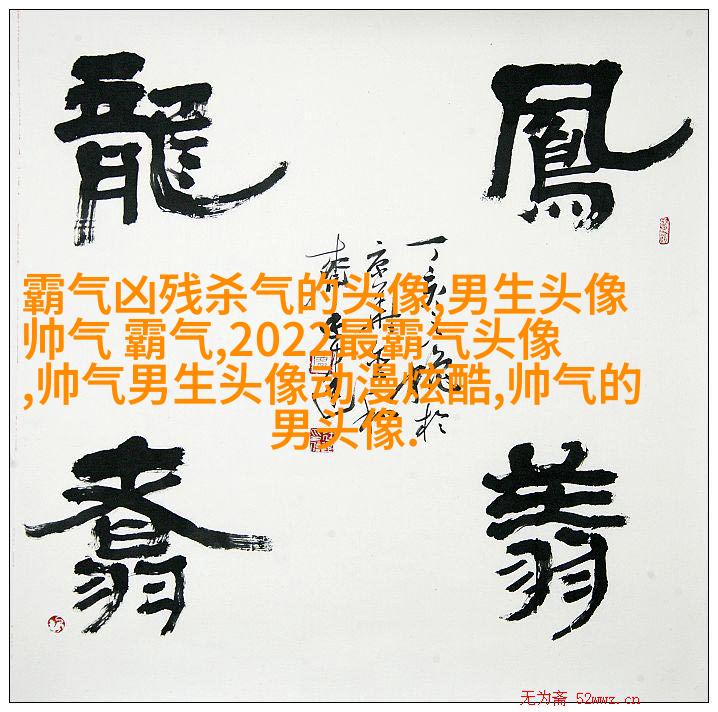 鳳翔
龍翥
丁亥
霸气凶残杀气的头像,男生头像
帅气 霸气,2022最霸气头像
,帅气男生头像动漫炫酷,帅气的
男头像.
无为斋 52wwz.cn